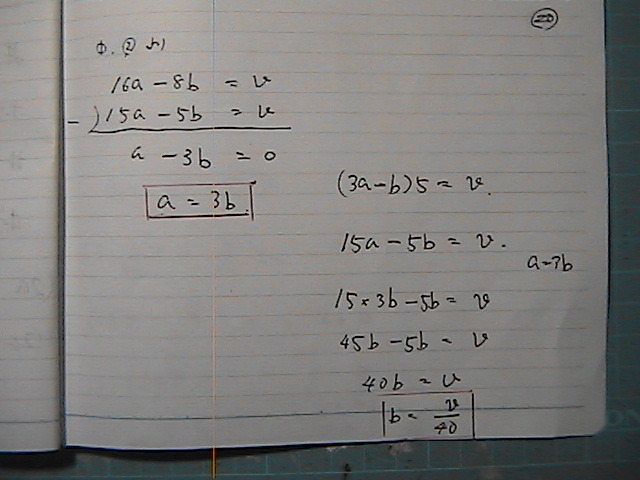 20
①, ② より
16a - 8b = v
-) 15a - 5b = v
a - 3b = 0
a = 3b
(3a-b)5 = v.
15a - 5b = v.
a=3b
15×3b - 5b = v
45b - 5b = v
40b = v
b = v/40